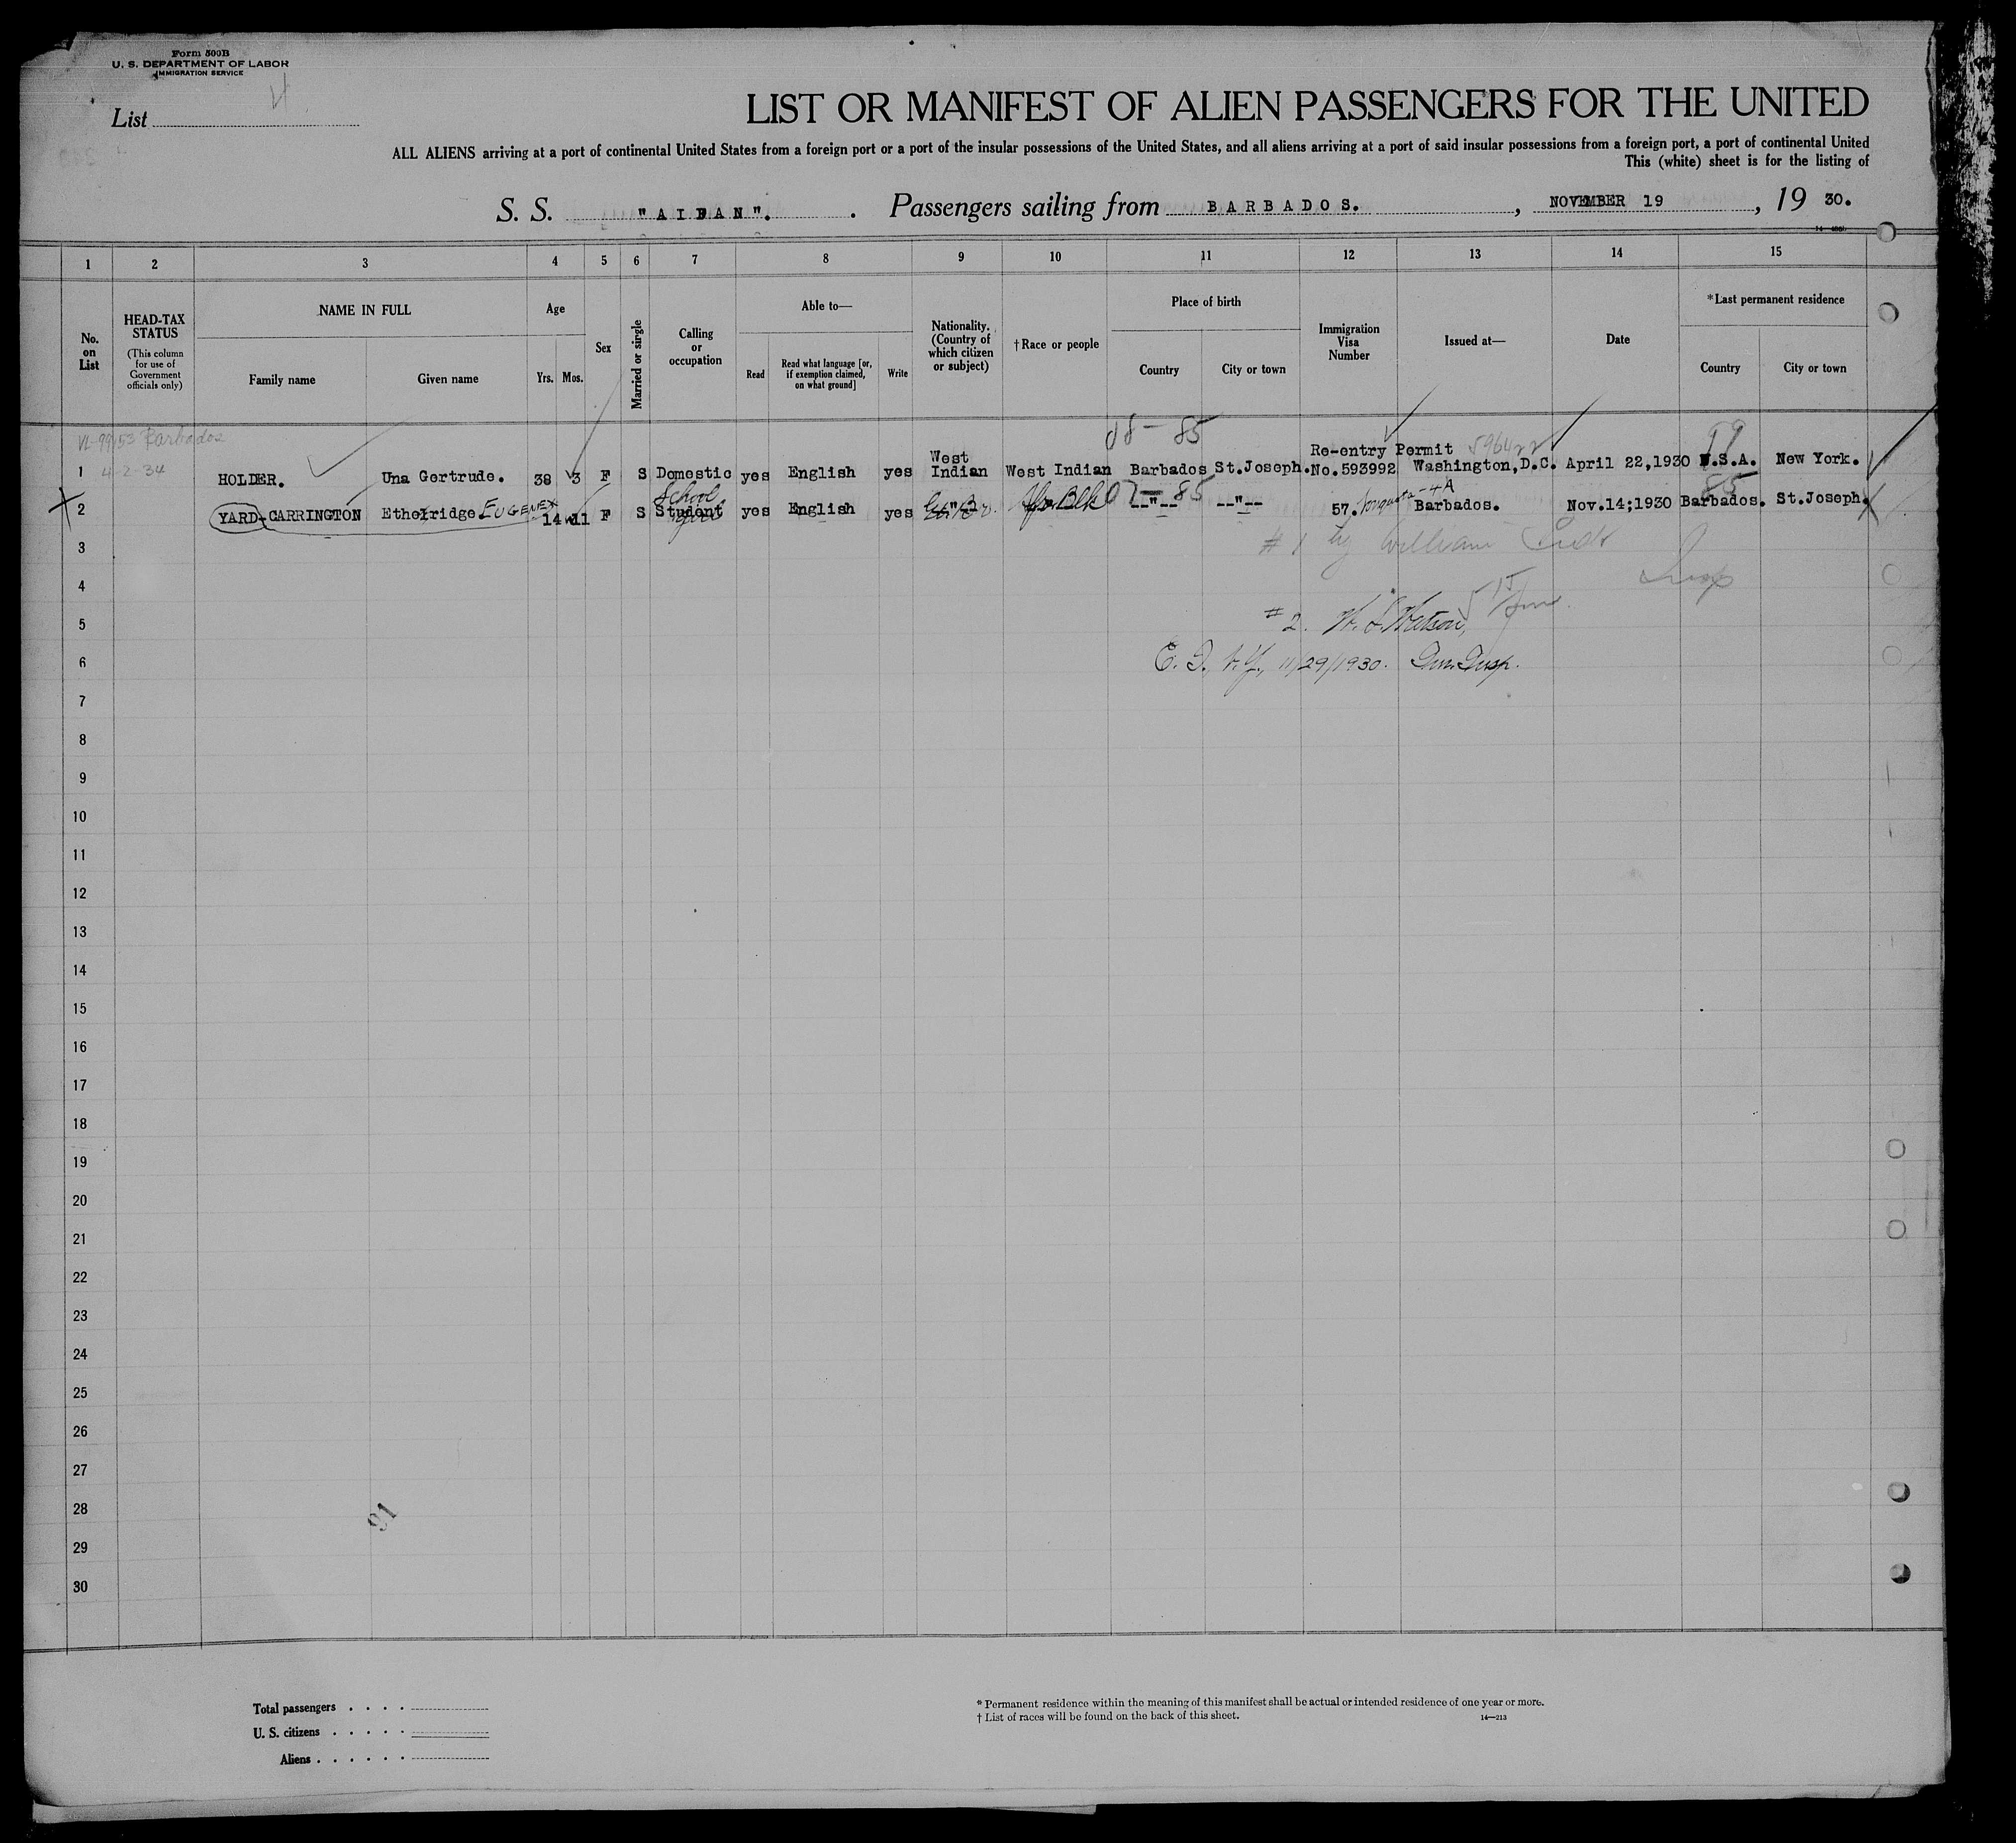 Form 500B
U. S. DEPARTMENT OF LABOR
IMMIGRATION SERVICE
List
LIST OR MANIFEST OF ALIEN PASSENGERS FOR THE UNITED
ALL ALIENS arriving at a port of continental United States from a foreign port or a port of the insular possessions of the United States, and all aliens arriving at a port of said insular possessions from a foreign port, a port of continental United
This (white) sheet is for the listing of
S. S. "AIDAN". Passengers sailing from BARBADOS. , NOVEMBER 19 , 19 30.
1 2 3 4 5 6 7 8 9 10 11 12 13 14 15
No. on List
HEAD-TAX STATUS
(This column for use of Government officials only)
NAME IN FULL
Family name Given name
Age
Yrs. Mos.
Sex
Married or single
Calling or occupation
Able to—
Read
Read what language [or, if exemption claimed, on what ground]
Write
Nationality. (Country of which citizen or subject)
†Race or people
Place of birth
Country City or town
Immigration Visa Number
Issued at—
Date
*Last permanent residence
Country City or town
Barbados
4-2-34
08-85
596422
59
1 HOLDER. Una Gertrude. 38 3 F S Domestic yes English yes West Indian West Indian Barbados St.Joseph. Re-entry Permit No.593992 Washington,D.C. April 22,1930 U.S.A. New York.
School girl
07-85
-4A
85
2 YARD-CARRINGTON Ethelridge EUGENE 14 11 F S Student yes English yes Afr. Blk --"-- --"-- 57. Barbados. Nov.14;1930 Barbados. St.Joseph.
3
# 1 by William
Insp
4
5
# 2. W. L. Watson,
6
E. I., N.Y., 11/29/1930. Im. Insp.
7
8
9
10
11
12
13
14
15
16
17
18
19
20
21
22
23
24
25
26
27
28
91
29
30
Total passengers . . . .
U. S. citizens . . . . .
Aliens . . . . . .
* Permanent residence within the meaning of this manifest shall be actual or intended residence of one year or more.
† List of races will be found on the back of this sheet.
14—213